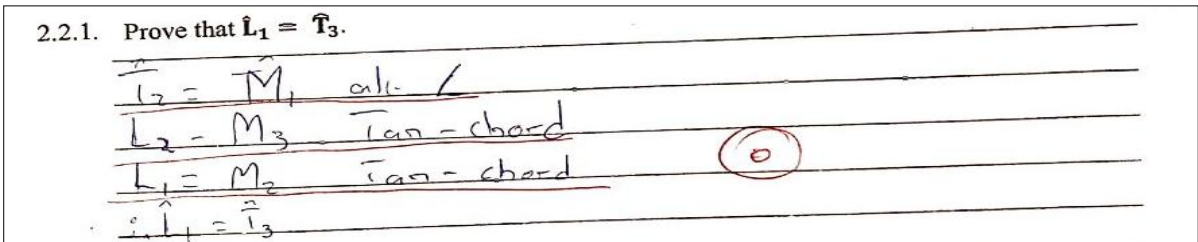 2.2.1. Prove that L̂₁ = T̂₃.
T̂₂ = M̂₁ alt. ∠
L₂ = M₃ Tan-chord
L₁ = M₂ Tan-chord
0
∴ L̂₁ = T̂₃